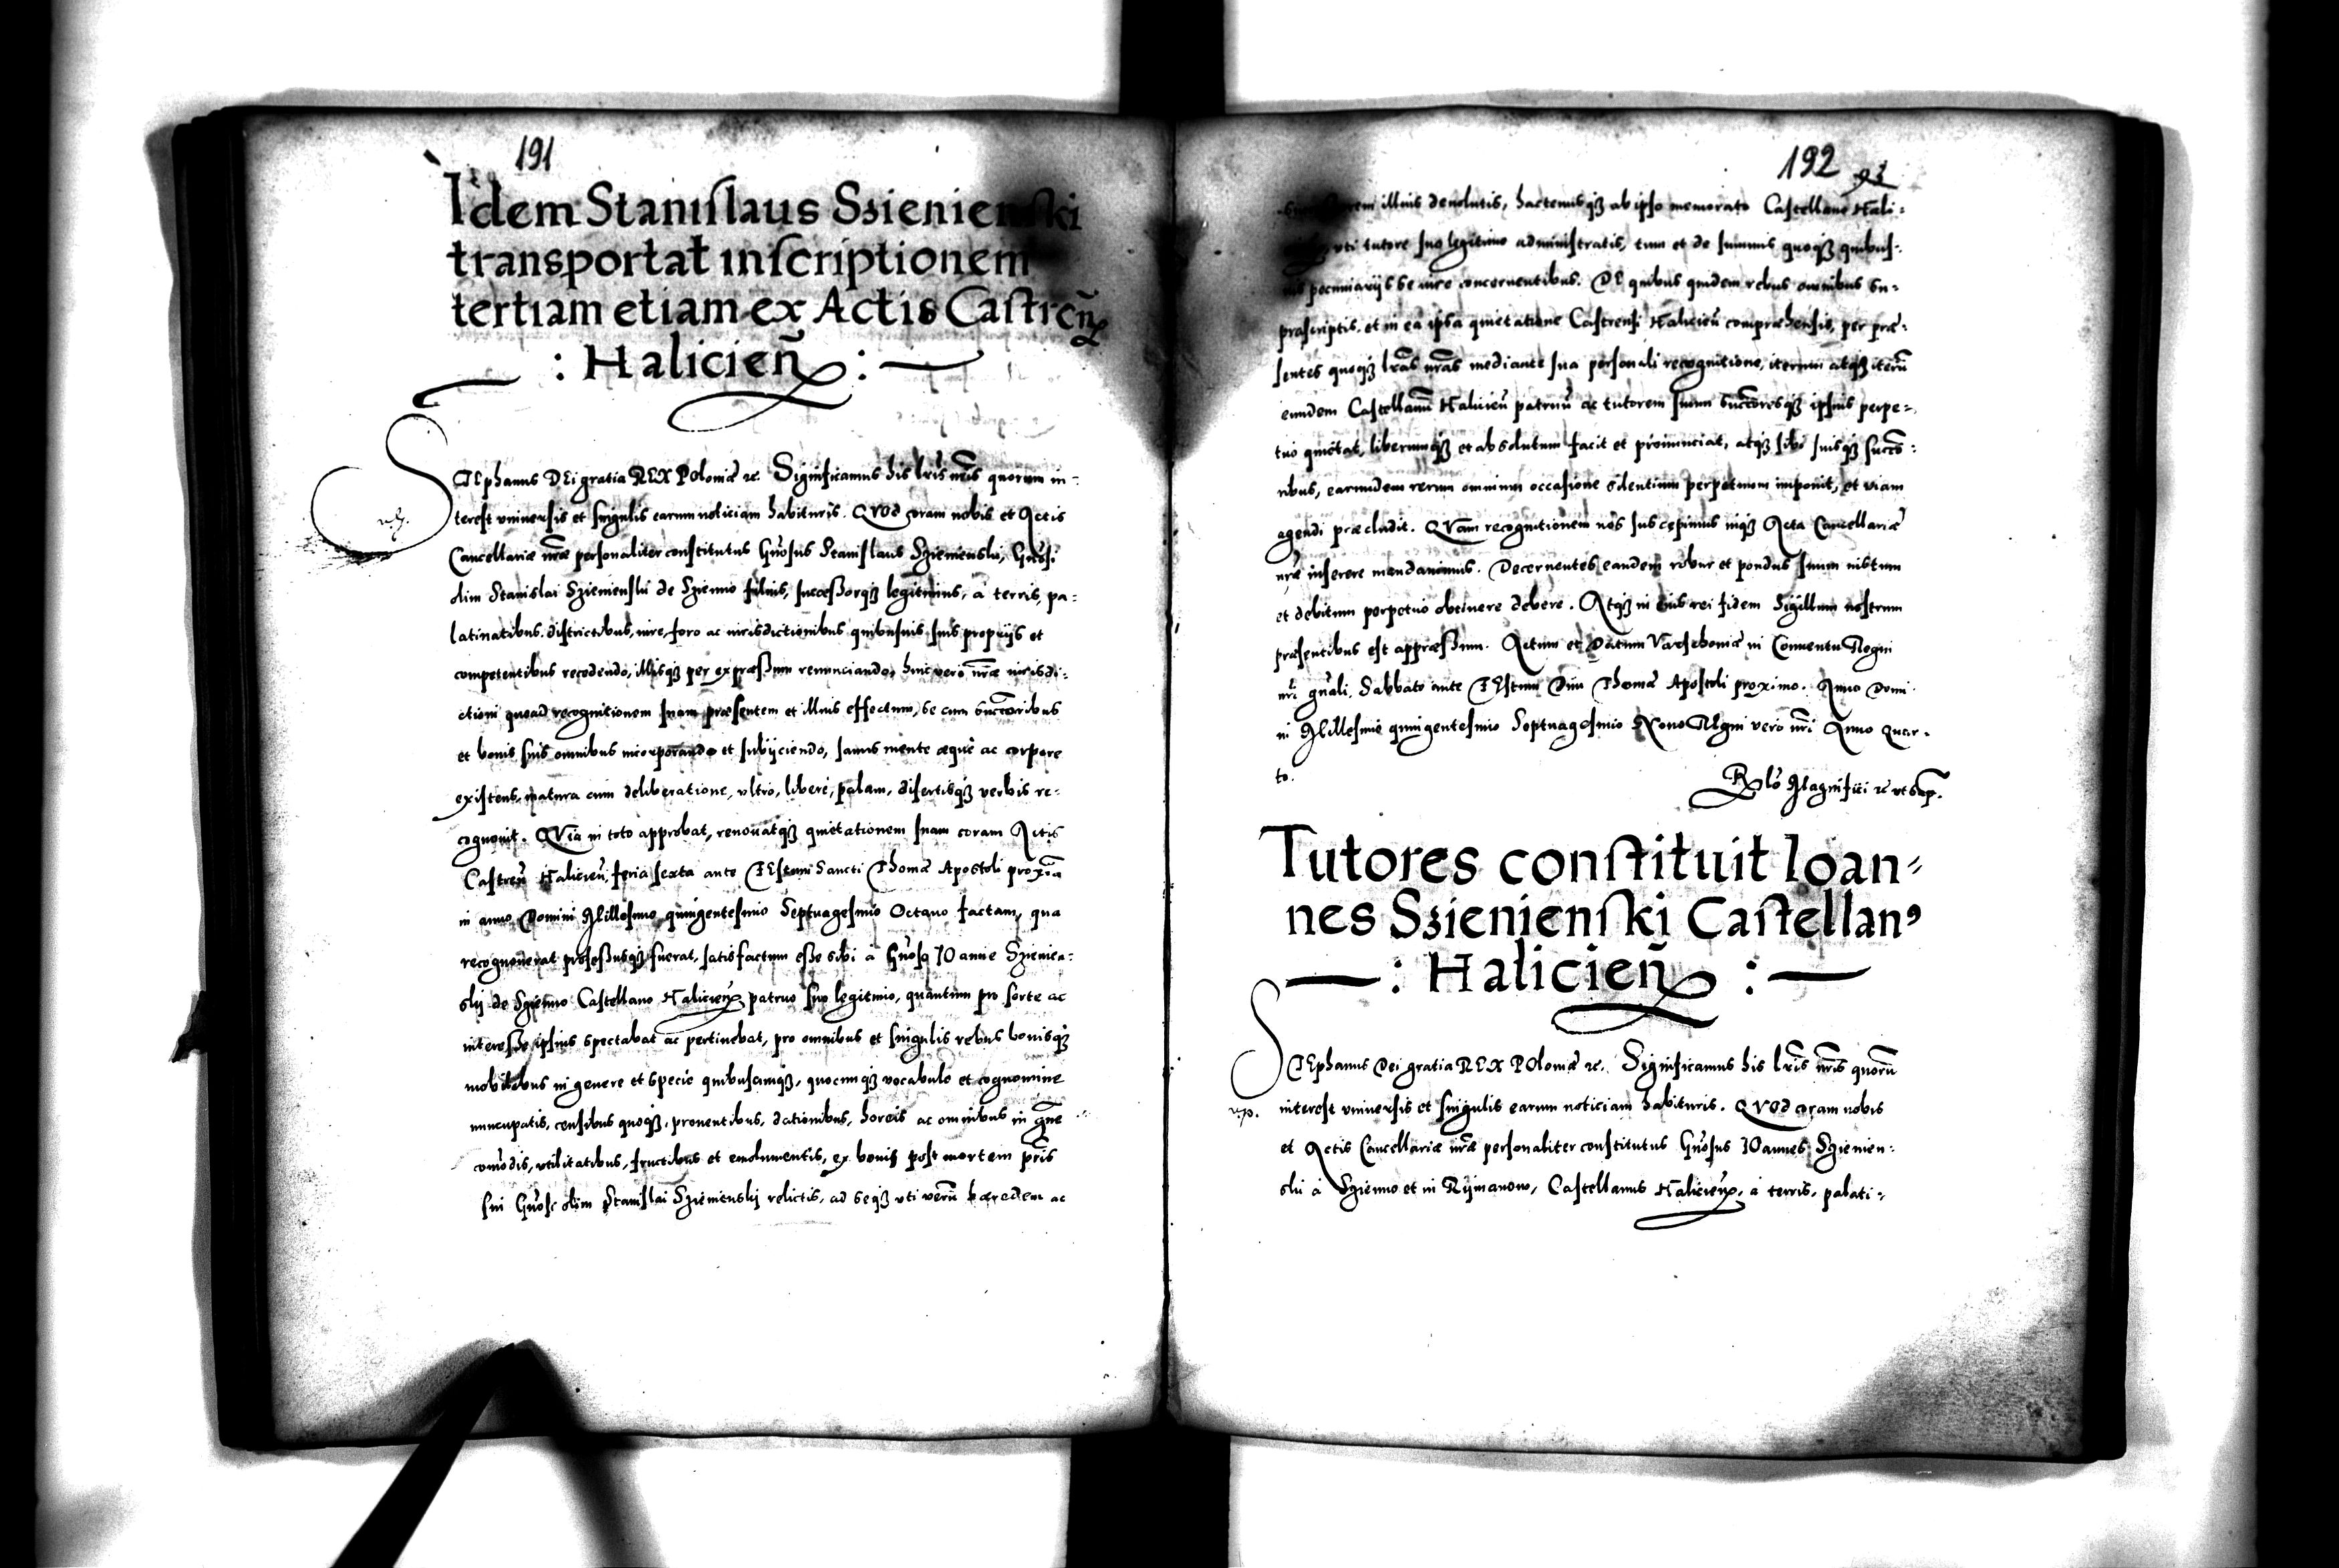 191
Idem Stanislaus Szienienski
transportat inscriptionem
tertiam etiam ex Actis Castren̄
: Halicien̄ :
STEphanus DEi gratia REX Poloniæ ꝛc. Significamus his lrīs nrīs quorum in-
terest vniuersis et singulis earum noticiam habituris. QVod coram nobis et Actis
Cancellariæ nrāe personaliter constitutus Gn̄osus Stanislaus Szienienski, Gn̄osi
olim Stanislai Szienienski de Szienno filius, successorqꝫ legitimus, à terris, pa-
latinatibus, districtibus, iure, foro ac iurisdictionibus quibusuis suis proprijs et
competentibus recedendo, illisqꝫ per expræssum renunciando, hinc vero nrāe iurisdi-
ctioni quoad recognitionem suam præsentem et illius effectum, se cum succōribus
et bonis suis omnibus incorporando et subijciendo, sanus mente æquè ac corpore
existens, matura cum deliberatione, vltro, libere, palam, disertisqꝫ verbis re-
cognouit. QVia in toto approbat, renouatqꝫ quietationem suam coram Actis
Castren̄ Halicien̄, feria sexta ante FEstum Sancti Thomæ Apostoli proxīa
in anno Domini Millesimo quingentesimo Septuagesimo Octauo factam, qua
recognouerat professusqꝫ fuerat, satisfactum esse sibi à Gn̄oso IOanne Szienien-
skij de Szienno Castellano Halicien̄ patruo suo legitimo, quantum pro sorte ac
interesse ipsius spectabat ac pertinebat, pro omnibus et singulis rebus bonisqꝫ
mobilibus in genere et specie quibuscunqꝫ, quocunqꝫ vocabulo et cognomine
nuncupatis, censibus quoqꝫ, prouentibus, dationibus, horeis ac omnibus in gn̄e
com̄odis, vtilitatibus, fructibus et emolumentis, ex bonis post mortem prīs
sui Gn̄osi olim Stanislai Szienienskij relictis, ad seqꝫ vti verū hæredem ac
192 93
illius deuolutis, hactenusqꝫ ab ipso memorato Castellano Hali-
vti tutore suo legitimo administratis, tum et de summis quoqꝫ quibus-
uis pecuniarijs se iure concernentibus. DE quibus quidem rebus omnibus su-
prascriptis, et in ea ipsa quietatione Castrensi Halicien̄ compræhensis, per præ-
sentes quoqꝫ lrās nrās mediante sua personali recognitione, iterum atqꝫ iterū
eundem Castellanū Halicien̄ patruū ac tutorem suum succōresqꝫ ipsius perpe-
tuo quietat, liberumqꝫ et absolutum facit et pronunciat, atqꝫ sibi suisqꝫ succō-
ribus, earundem rerum omnium occasione silentium perpetuum imponit, et viam
agendi præcludit. QVam recognitionem nos suscepimus inqꝫ Acta Cancellariæ
nrāe inserere mandauimus. Decernentes eandem robur et pondus suum iustum
et debitum perpetuo obtinere debere. Atqꝫ in eius rei fidem Sigillum nostrum
præsentibus est appræssum. Actum et Datum Varschouiæ in Conuentu Regni
nrī gn̄ali, Sabbato ante FEstum Diui Thomæ Apostoli proximo. Anno Domi-
ni Millesimo quingentesimo Septuagesimo Nono REgni vero nrī Anno Quar-
to.
Rlō Magnifici ꝛc vt sup.
Tutores constituit Ioan-
nes Szienienski Castellanꝰ
: Halicien̄ :
STEphanus Dei gratia REX POloniæ ꝛc. Significamus his lrīs nrīs quorū
interest vniuersis et singulis earum noticiam habituris. QVOd coram nobis
et Actis Cancellariæ nrāe personaliter constitutus Gn̄osus IOannes Szienien-
ski à Szienno et in Rymanow, Castellanus Halicien̄, à terris, palati-